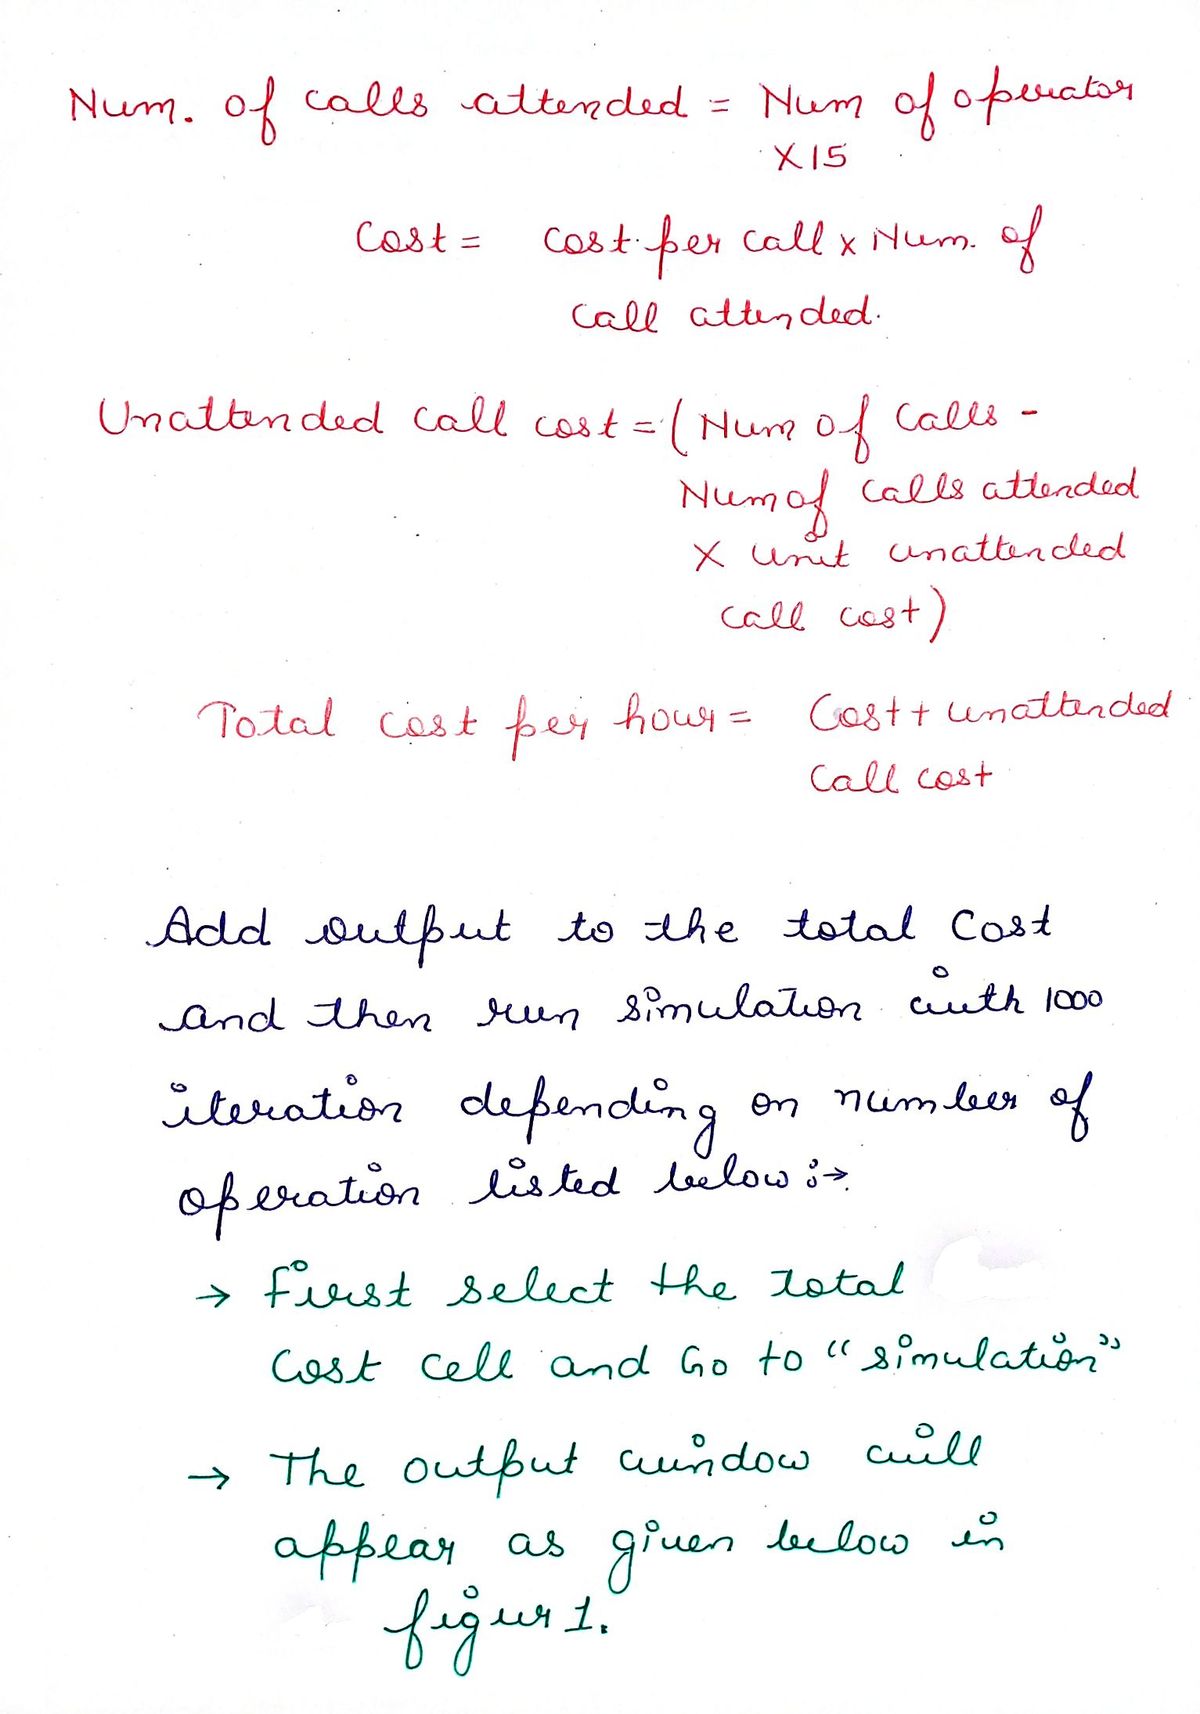 Num. of calls attended = Num of operator
X15
Cost = cost per call x Num. of
call attended.
Unattended call cost = ( Num of calls -
Num of calls attended
X unit unattended
call cost )
Total cost per hour = Cost + unattended
call cost
Add output to the total Cost
and then run simulation with 1000
iteration depending on number of
operation listed below :→
→ First select the total
Cost cell and Go to "simulation"
→ The output window will
appear as given below in
figur 1.